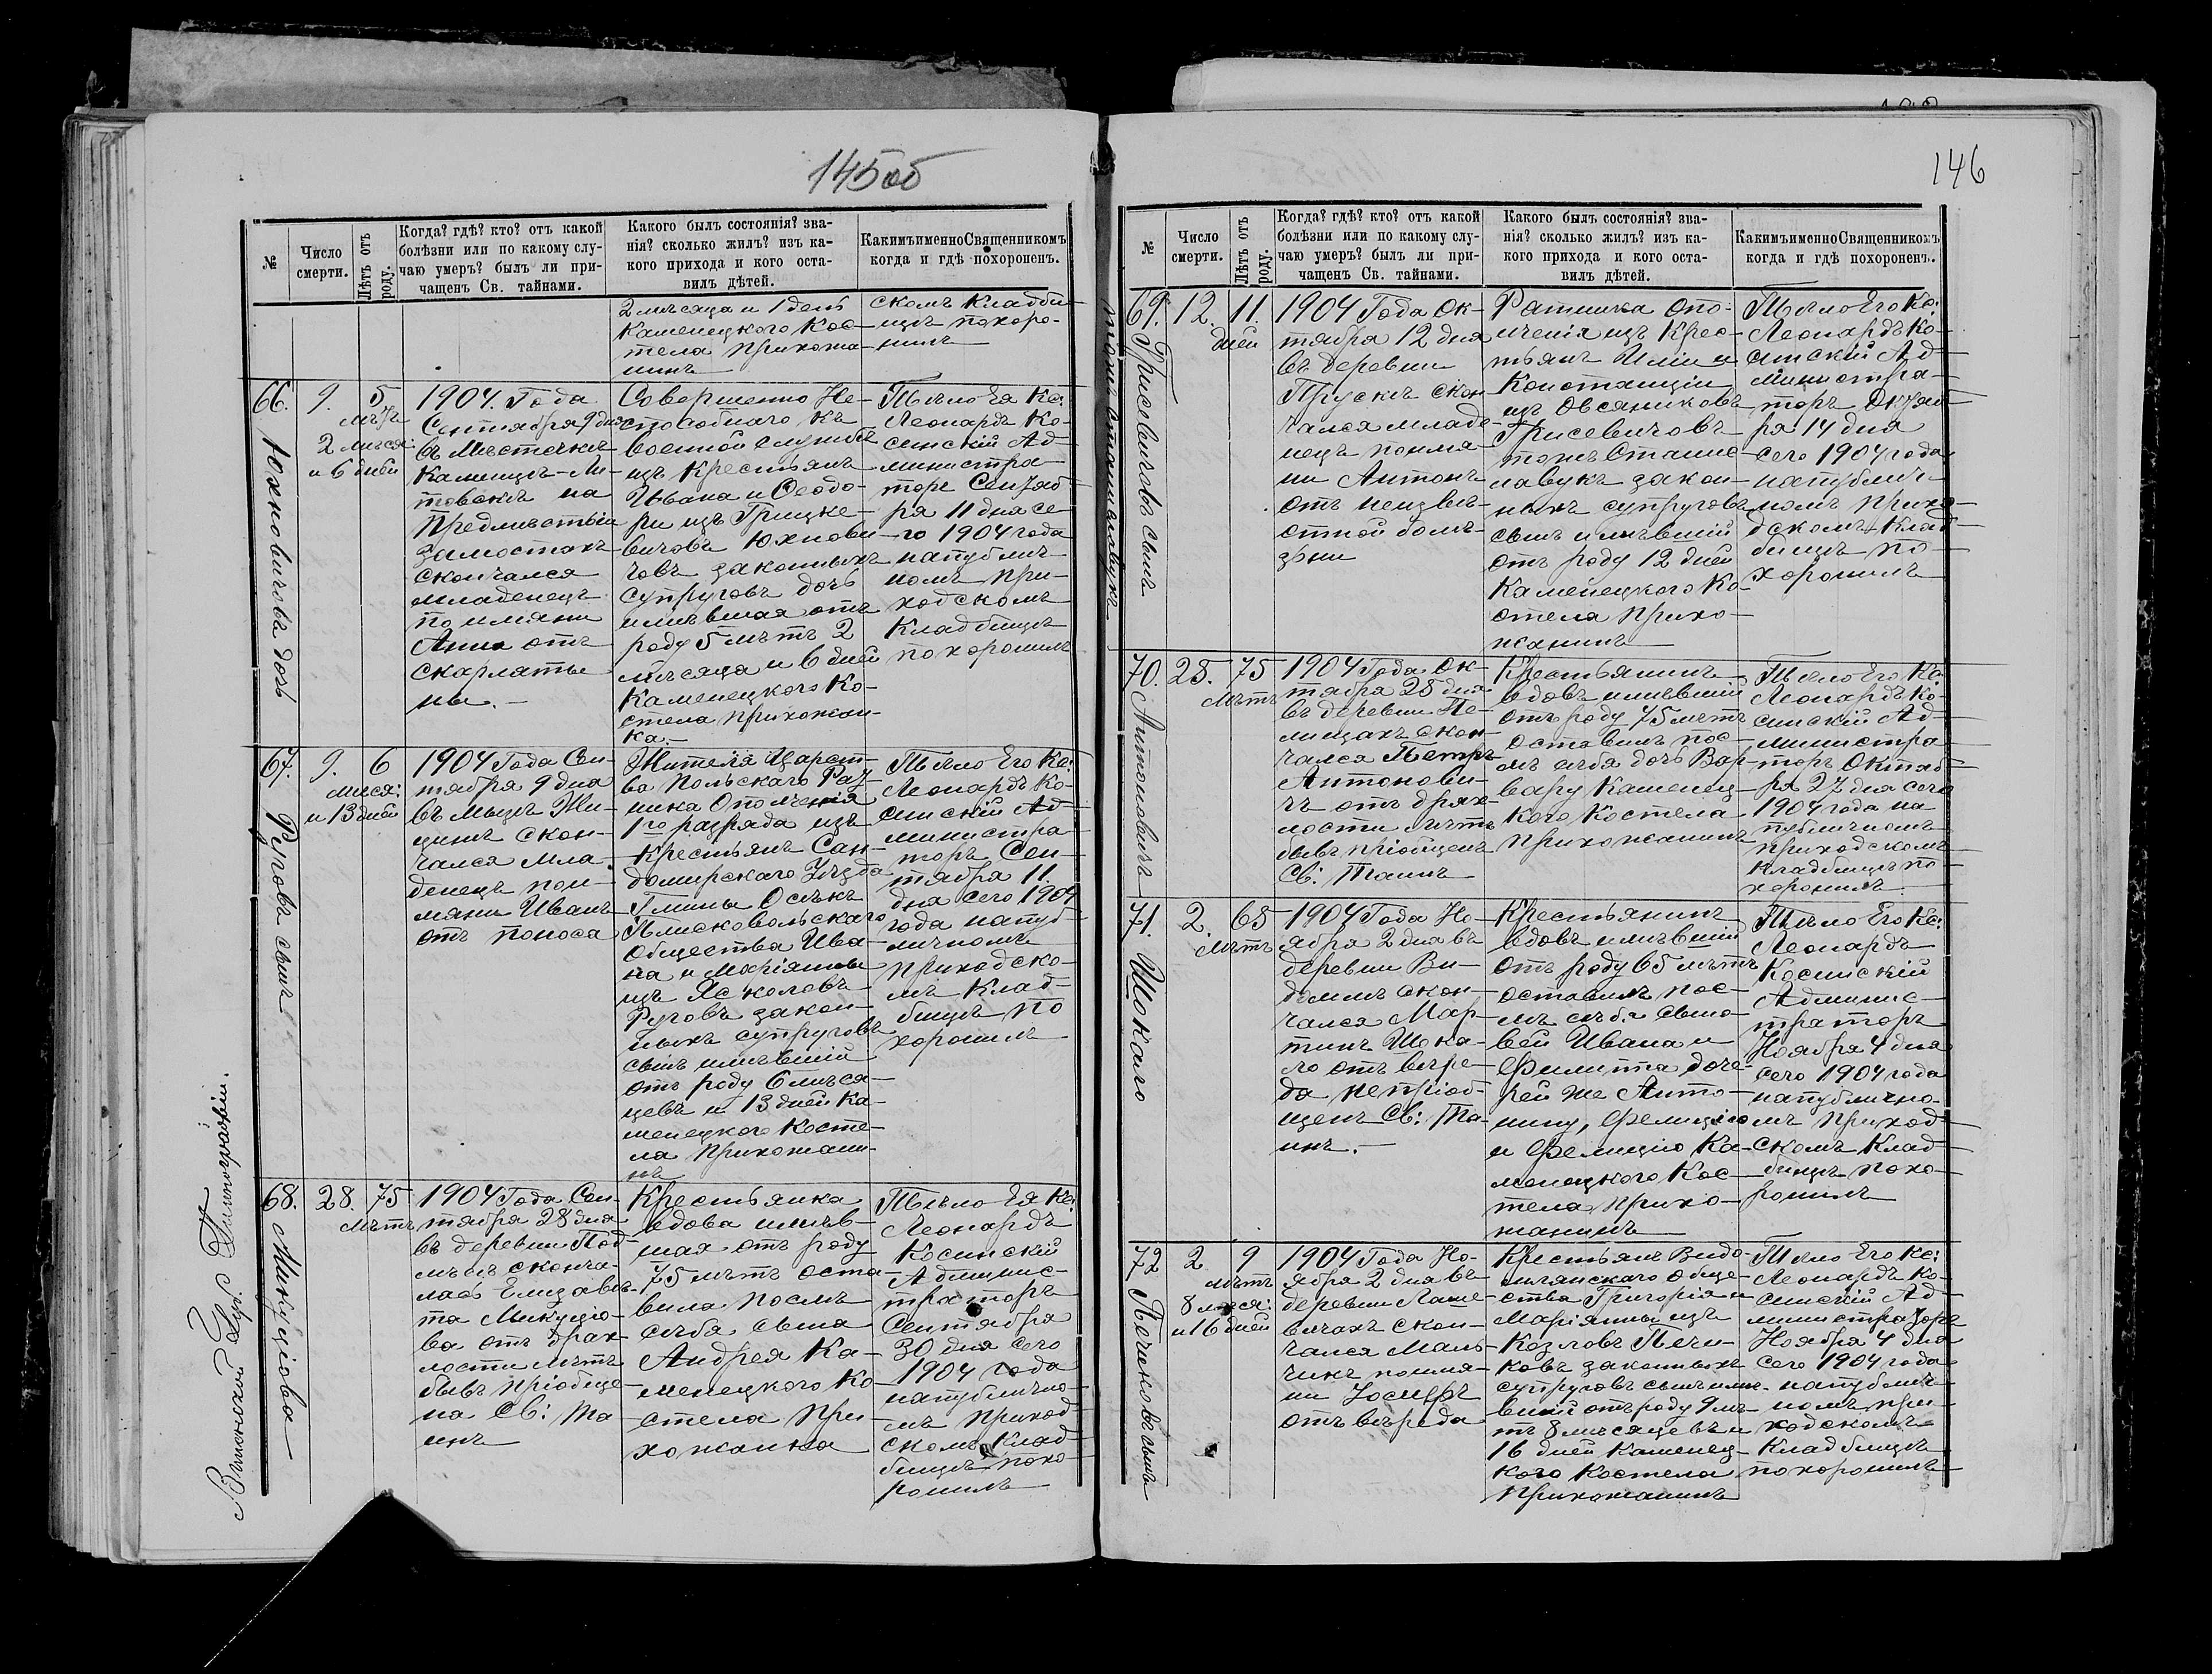 145 об
№
Число смерти.
Лѣтъ отъ роду.
Когда? гдѣ? кто? отъ какой
болѣзни или по какому слу-
чаю умеръ? былъ ли при-
чащенъ Св. тайнами.
Какого былъ состоянія? зва-
нія? сколько жилъ? изъ ка-
кого прихода и кого оста-
вилъ дѣтей.
Какимъ именно Священникомъ
когда и гдѣ похороненъ.
2 мѣсяца и 1 день
Каменецкого Кос-
тела прихожа-
нинъ
скомъ Кладби-
щѣ похоро-
нилъ
66.
Юхновичовъ дочь
9.
5
лѣтъ
2 мѣся:
и 6 дней
1904. Года
Сентября 9 дня
въ Мѣстечкѣ
Каменцѣ-Ли-
товскѣ на
Предмѣстьи
Замостахъ
скончался
младенецъ
по имяни
Анна отъ
скарлати-
ны.
Совершенно Не-
способнаго къ
военной службѣ
изъ Крестьянъ
Ивана и Ѳеодо-
ры изъ Грицке-
вичовъ Юхнови-
човъ законныхъ
супруговъ дочь
имѣвшая отъ
роду 5 лѣтъ 2
мѣсяца и 6 дней
Каменецкого Ко-
стела прихожан-
ка.
Тѣло Ея Кс:
Леонардъ Ко-
синскій Ад-
министра-
торъ Сентяб-
ря 11 дня се-
го 1904 года
на публич-
номъ при-
ходскомъ
Кладбищѣ
похоронилъ
67.
Руговъ сынъ
9.
6
мѣся:
и 13 дней
1904 Года Сен-
тября 9 дня
скон-
чался мла-
денецъ пои-
мяни Иванъ
отъ поноса
Жителя Царст-
ва Польскаго Рат-
ника Ополченія
1го разряда изъ
Крестьянъ Сан-
домирскаго Уѣзда
Гмины Осѣкъ
Общества Ива-
на и Маріянны
изъ Ясколовъ
Руговъ закон-
ныхъ супруговъ
сынъ имѣвшій
отъ роду 6 мѣся-
цевъ и 13 дней Ка-
менецкого Косте-
ла прихожани-
нъ
Тѣло Его Кс:
Леонардъ Ко-
синскій Ад-
министра-
торъ Сен-
тября 11
дня сего 1904
года на пуб-
личномъ
приходско-
мъ Клад-
бищѣ по
хоронилъ
68.
Микуціова
28.
75
лѣтъ
1904 Года Сен-
тября 28 дня
въ деревни Под-
сконча-
лась Елизаве-
та Микуціо-
ва отъ Драх-
лости лѣтъ
бывъ пріобще-
на Св: Та
инъ
Крестьянка
вдова имѣв-
шая отъ роду
75 лѣтъ оста-
вила послѣ
себя сына
Андрея Ка-
менецкого Ко-
стела при-
хожанка
Тѣло Ея Кс:
Леонардъ
Косинскій
Админис-
траторъ
Сентября
30 дня сего
1904 года
на публично-
мъ приход-
скомъ Клад-
бищѣ похо-
ронилъ
Виленской Губ. Типографіи.
146
№
Число смерти.
Лѣтъ отъ роду.
Когда? гдѣ? кто? отъ какой
болѣзни или по какому слу-
чаю умеръ? былъ ли при-
чащенъ Св. тайнами.
Какого былъ состоянія? зва-
нія? сколько жилъ? изъ ка-
кого прихода и кого оста-
вилъ дѣтей.
Какимъ именно Священникомъ
когда и гдѣ похороненъ.
69.
Грисевичовъ сынъ
тожъ Станиславукъ
12.
11.
дней
1904 Года Ок-
тября 12 дня
въ деревни
Прускъ скон-
чался младе-
нецъ поимя-
ни Антонъ
отъ неизвѣ-
стной болѣ-
зни
Ратника Опо-
лченія изъ Крес-
тьянъ Иліи и
Констанціи
изъ Овсяниковъ
Грисевичовъ
тожъ Станис-
лавукъ закон-
ныхъ супруговъ
сынъ имѣвшій
отъ роду 12 дней
Каменецкого Ко-
стела прихо-
жанинъ
Тѣло Его Кс:
Леонардъ Ко-
синскій Ад-
министра-
торъ Октяб-
ря 14 дня
сего 1904 года
на публич-
номъ прихо-
дскомъ Клад-
бищѣ по-
хоронилъ
70.
Антоновичъ
25.
75
лѣтъ
1904 Года Ок-
тября 25 дня
въ деревни Пе-
лищахъ скон-
чался Петръ
Антонови-
чъ отъ драх-
лости лѣтъ
бывъ пріобщенъ
Св: Таинъ
Крестьянинъ
вдовъ имѣвшій
отъ роду 75 лѣтъ
оставилъ пос-
лѣ себя дочь Вар-
вару Каменец-
кого Костела
прихожанинъ
Тѣло Его Кс:
Леонардъ Ко-
синскій Ад-
министра-
торъ Октяб-
ря 27 дня сего
1904 года на
публичномъ
приходскомъ
Кладбищѣ по-
хоронилъ
71.
Шокало
2.
65
лѣтъ
1904 Года Но-
ября 2 дня въ
деревни Ви-
домлѣ скон-
чался Мар-
тинъ Шока-
ло отъ вере-
да непріоб-
щенъ Св: Та-
инъ.
Крестьянинъ
вдовъ имѣвшій
отъ роду 65 лѣтъ
оставилъ пос-
лѣ себя сыно-
вей Ивана и
Филиппа доче-
рей же Анто-
нину, Фелицію
и Фелицію Ка-
менецкого Кос-
тела прихо-
жанинъ
Тѣло Его Кс:
Леонардъ
Косинскій
Админис-
траторъ
Ноября 4 дня
сего 1904 года
на публично-
мъ приход-
скомъ Клад-
бищѣ похо-
ронилъ
72
Печиковъ сынъ
2
9
лѣтъ
8 мѣся:
и 16 дней
1904 Года Но-
ября 2 дня въ
деревни Лаше-
вичахъ скон-
чался Маль-
чикъ поимя-
ни Іосифъ
отъ вереда
Крестьянъ Видо-
млянскаго Обще-
ства Григорія и
Маріянны изъ
Козловъ Печи-
ковъ законныхъ
супруговъ сынъ имѣ-
вшій отъ роду 9 лѣ-
тъ 8 мѣсяцевъ и
16 дней Каменец-
кого Костела
прихожанинъ
Тѣло Его Кс:
Леонардъ Ко-
синскій Ад-
министраторъ
Ноября 4 дня
сего 1904 года
на публич-
номъ при-
ходскомъ
Кладбищѣ
похоронилъ